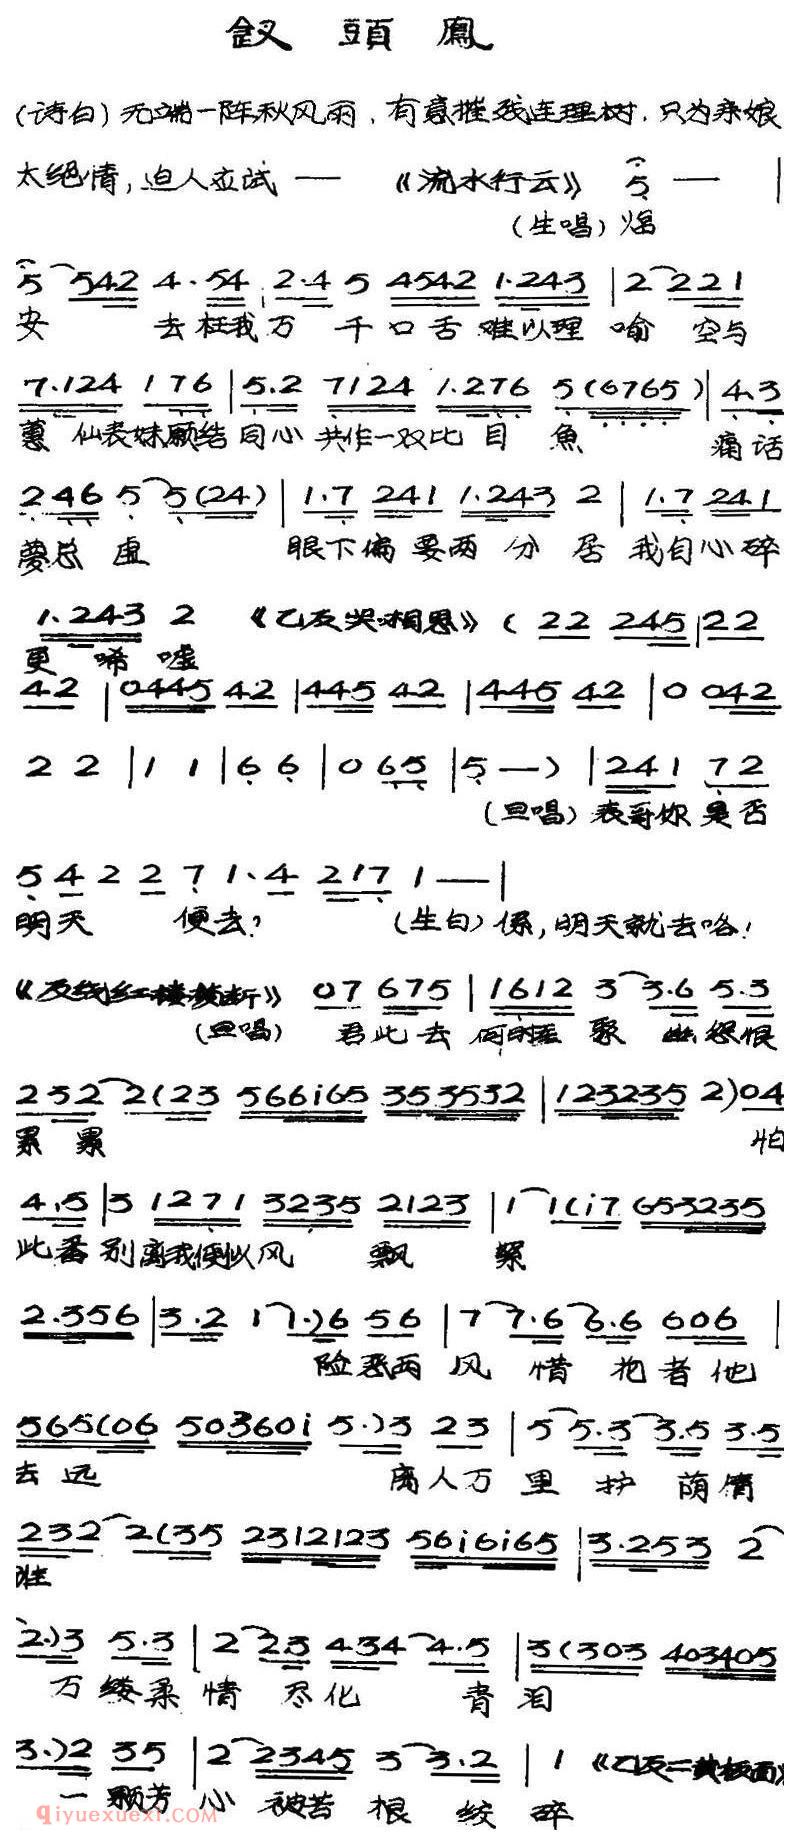 釵頭鳳
(诗白)无端一阵秋风雨，有意摧残连理树，只为亲娘
太绝情，迫人应试 — 《流水行云》 5 — |
(生唱)临
5 542 4·54 2·4 5 4542 1.243 | 2 2 2 1
安 去枉我万 千口舌难以理 喻 空与
7.124 1 7 6 | 5.2 7124 1.276 5 (6765) | 4.3
蕙仙表妹愿结同心 共作一双比目魚 痛话
246 5 5(24) | 1.7 241 1.243 2 | 1.7 241
夢总虚 眼下偏要两分居 我自心碎
1.243 2 《乙反哭相思》 ( 22 245 | 22
更唏嘘
42 | 0445 42 | 445 42 | 445 42 | 0 042
2 2 | 1 1 | 6 6 | 0 65 | 5 — ) | 241 72
(旦唱)表哥你是否
5 4 2 2 7 1.4 217 1 — |
明天 便去? (生白)係，明天就去咯！
《反线红楼梦断》 07 675 | 1612 3 3.6 5.3
(旦唱) 君此去 何时 聚 幽怨恨
232 2(23 566i65 353532 | 123235 2) 04
累累 怕
4.5 | 3 1271 3235 2123 | 1 1(i7 653235
此番别离我便似风 飘絮
2.356 | 3.2 1 1.)6 56 | 7 7.6 6.6 606 |
险恶两 风 惜 抱者他
565(06 503601 5.)3 23 | 5 5.3 3.5 3.5
去远 离人万 里 护 荫情
232 2(35 2312123 56i6i65 | 3.253 2
2.)3 5.3 | 2 23 434 4.5 | 3(303 403405
万缕柔 情 尽化 青泪
3.)2 35 | 2 2345 3 3.2 | 1 《乙反二黄板面》
一颗芳 心 被苦 根 绞 碎
qiyuexuexi.com